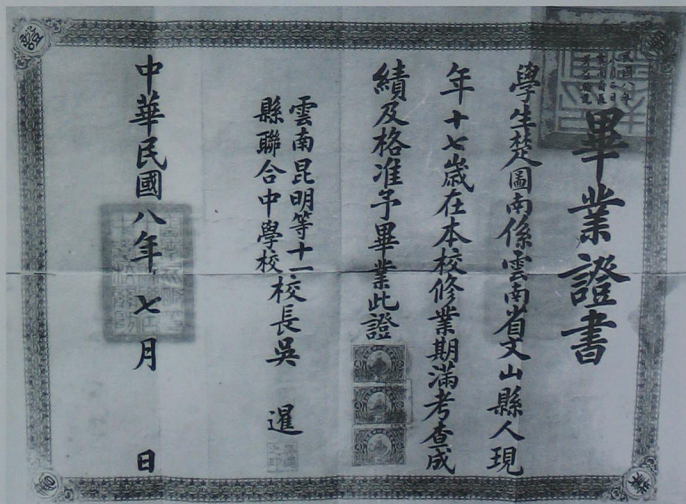 畢業證書
學生楚圖南係雲南省文山縣人現
年十七歲在本校修業期滿考查成
績及格准予畢業此證
雲南昆明等十一
縣聯合中學校
校長吳 暹
中華民國八年七月 日